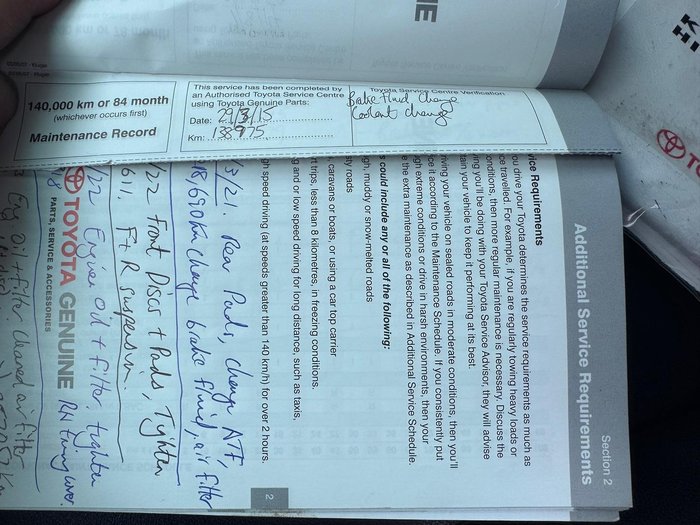 140,000 km or 84 month
(whichever occurs first)
Maintenance Record
This service has been completed by
an Authorised Toyota Service Centre
using Toyota Genuine Parts:
Date: 29/3/15
Km: 138975
Toyota Service Centre Verification
Brake fluid change
Coolant change
Section 2
Additional Service Requirements
vice Requirements
ou drive your Toyota determines the service requirements as much as
ce travelled. For example, if you are regularly towing heavy loads or
onditions, then more regular maintenance is necessary. Discuss the
ing you'll be doing with your Toyota Service Advisor, they will advise
tain your vehicle to keep it performing at its best.
riving your vehicle on sealed roads in moderate conditions, then you'll
ce it according to the Maintenance Schedule. If you consistently put
gh extreme conditions or drive in harsh environments, then your
e the extra maintenance as described in Additional Service Schedule.
could include any or all of the following:
gh, muddy or snow-melted roads
sty roads
, caravans or boats, or using a car top carrier
rt trips, less than 8 kilometres, in freezing conditions.
g and or low speed driving for long distance, such as taxis,
gh speed driving (at speeds greater than 140 km/h) for over 2 hours.
2
/21. Rear Pads, change ATF,
change brake fluid, air filter
/22 Front Discs + Pads, Tighten
611. F+R suspension.
/22 Engine oil + filter, tighten
RH Timing cover.
TOYOTA GENUINE
PARTS, SERVICE & ACCESSORIES
Eng oil + filter Cleaned air filter